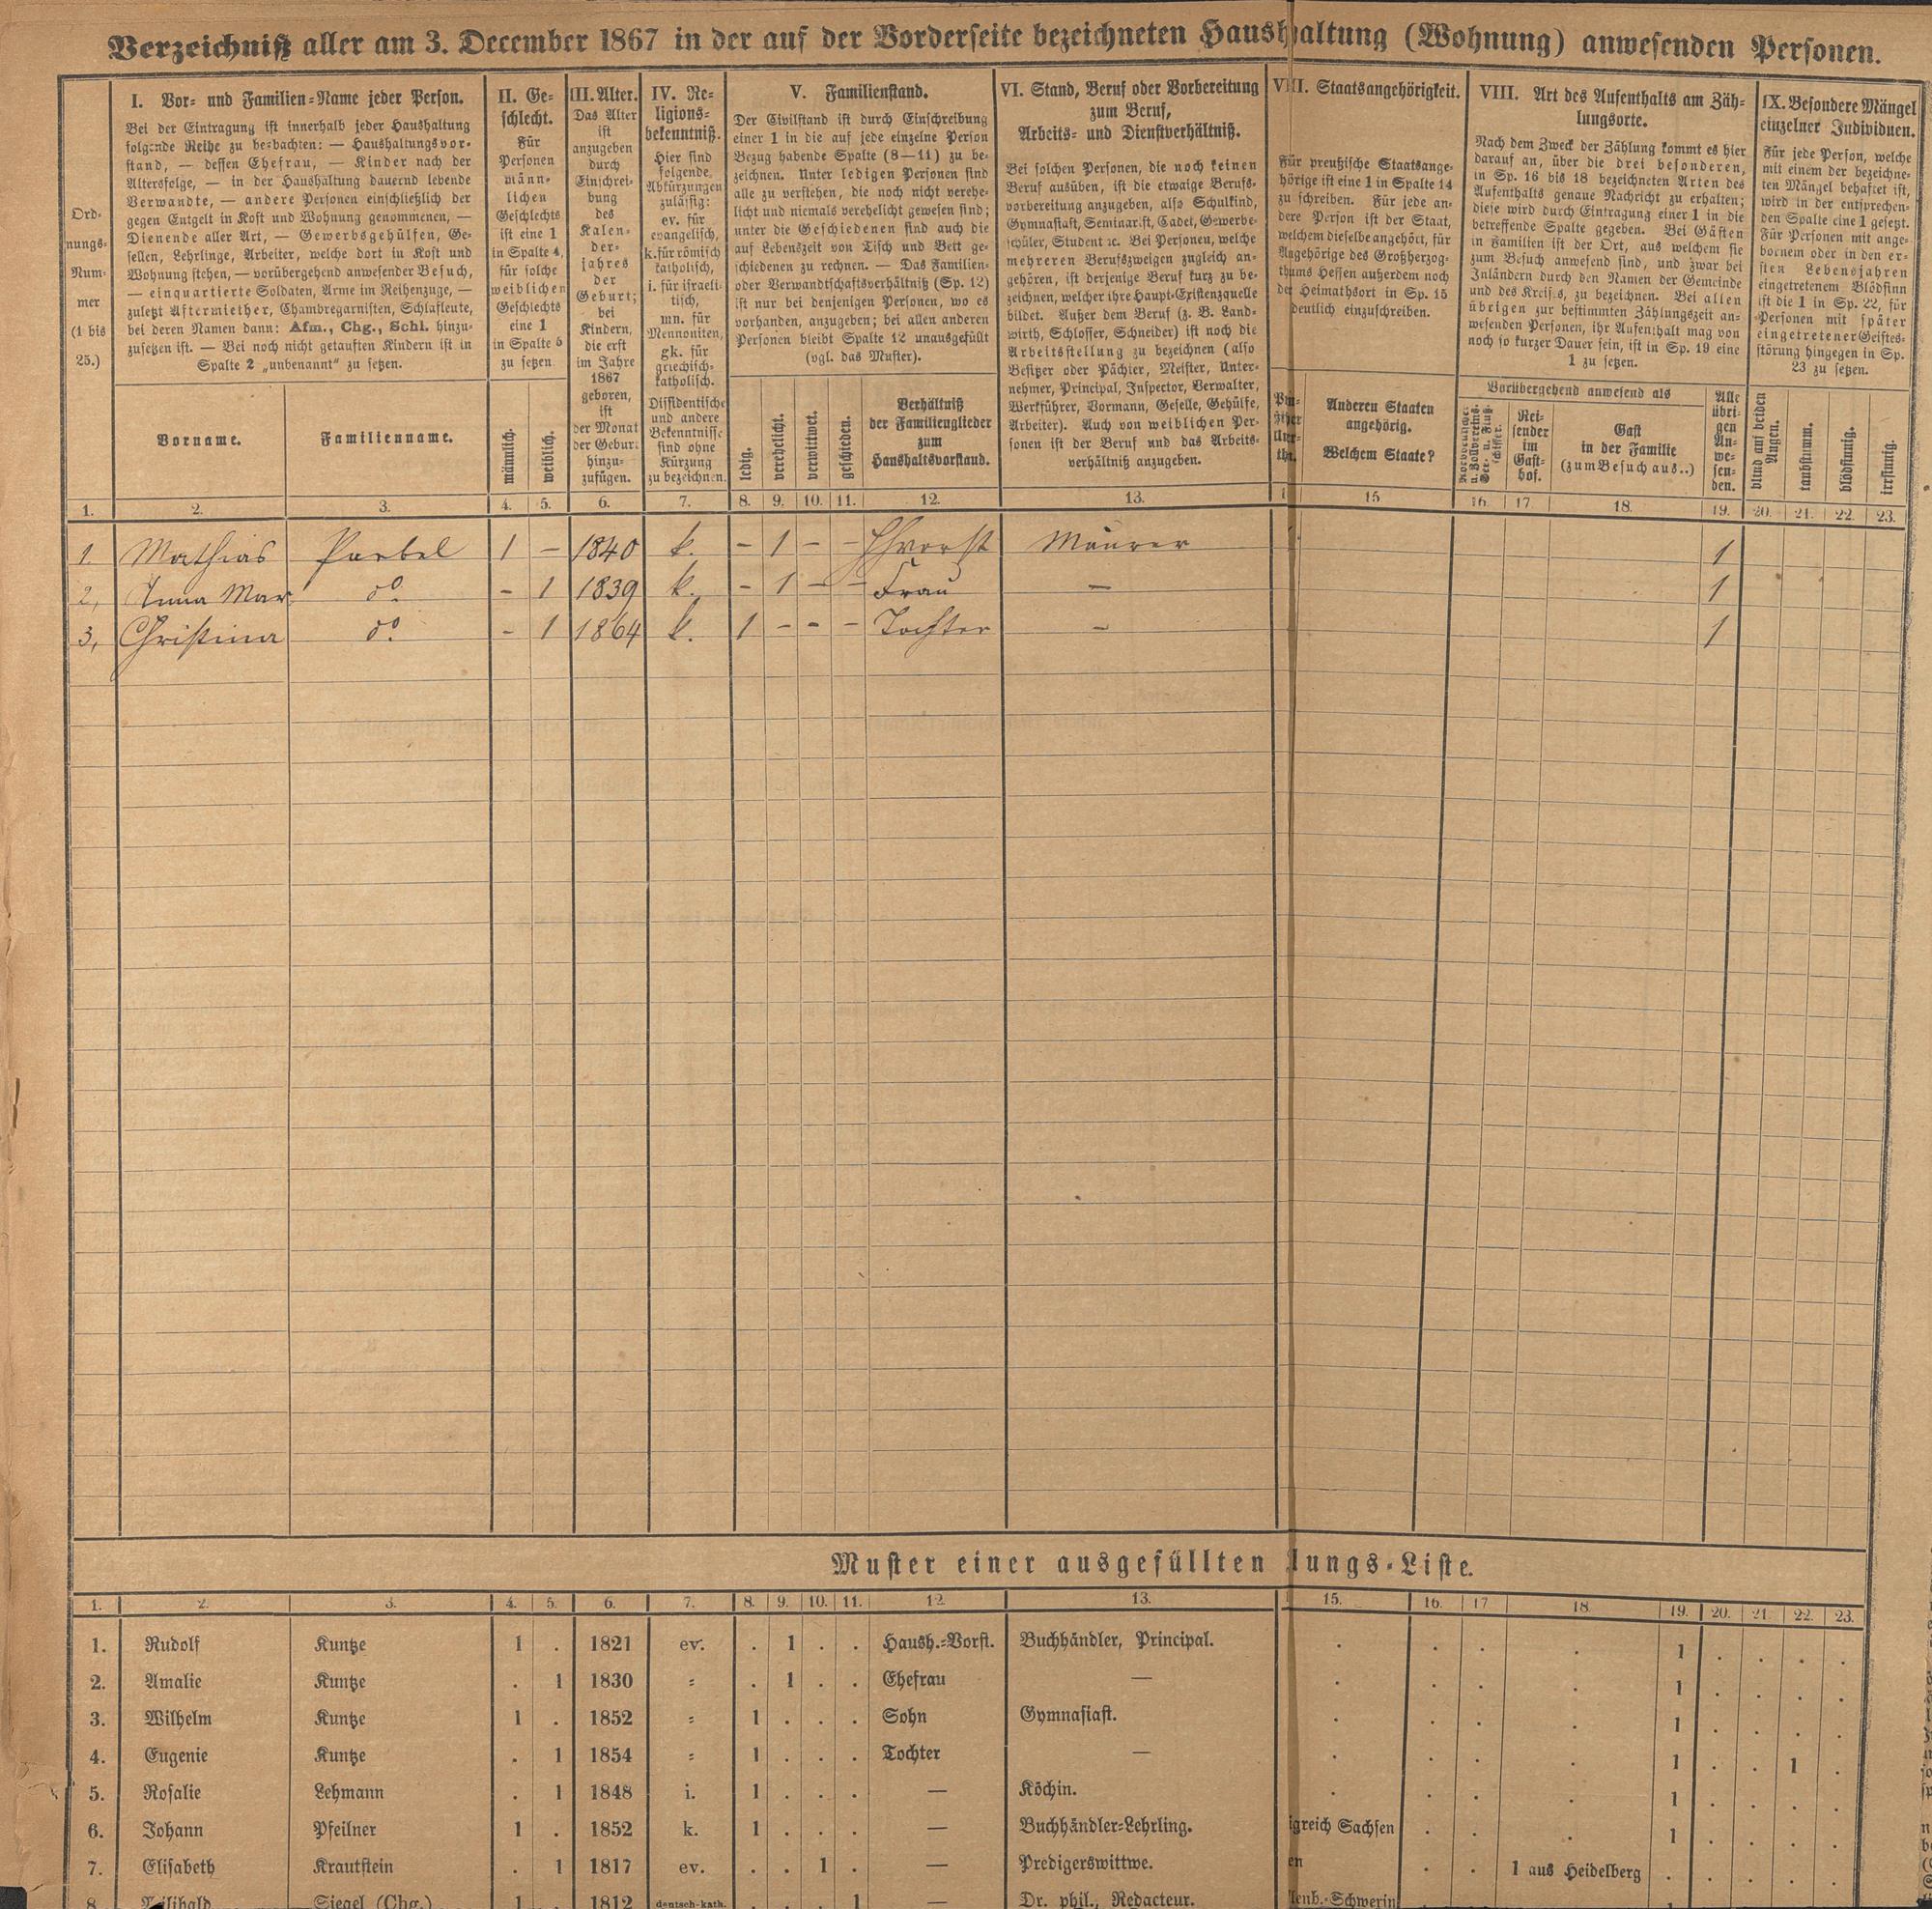 Verzeichniß aller am 3. December 1867 in der auf der Vorderseite bezeichneten Haushaltung (Wohnung) anwesenden Personen.
Ord-
nungs-
Num-
mer
(1 bis
25.)
I. Vor- und Familien-Name jeder Person.
Bei der Eintragung ist innerhalb jeder Haushaltung
folgende Reihe zu beobachten: — Haushaltungsvor-
stand, — dessen Ehefrau, — Kinder nach der
Altersfolge, — in der Haushaltung dauernd lebende
Verwandte, — andere Personen einschließlich der
gegen Entgelt in Kost und Wohnung genommenen, —
Dienende aller Art, — Gewerbsgehülfen, Ge-
sellen, Lehrlinge, Arbeiter, welche dort in Kost und
Wohnung stehen, — vorübergehend anwesender Besuch,
— einquartierte Soldaten, Arme im Reihenzuge, —
zuletzt Aftermiether, Chambregarnisten, Schlafleute,
bei deren Namen dann: Afm., Chg., Schl. hinzu-
zusetzen ist. — Bei noch nicht getauften Kindern ist in
Spalte 2 „unbenannt“ zu setzen.
Vorname.
Familienname.
II. Ge-
schlecht.
Für
Personen
männ-
lichen
Geschlechts
ist eine 1
in Spalte 4,
für solche
weiblichen
Geschlechts
eine 1
in Spalte 5
zu setzen.
männlich.
weiblich.
III. Alter.
Das Alter
ist
anzugeben
durch
Einschrei-
bung
des
Kalen-
der-
jahres
der
Geburt;
bei
Kindern,
die erst
im Jahre
1867
geboren,
ist
der Monat
der Geburt
hinzu-
zufügen.
IV. Re-
ligions-
bekenntniß.
Hier sind
folgende
Abkürzungen
zulässig:
ev. für
evangelisch,
k. für römisch
katholisch,
i. für israeli-
tisch,
mn. für
Mennoniten,
gk. für
griechisch-
katholisch.
Dissidentische
und andere
Bekenntnisse
sind ohne
Kürzung
zu bezeichnen.
V. Familienstand.
Der Civilstand ist durch Einschreibung
einer 1 in die auf jede einzelne Person
Bezug habende Spalte (8—11) zu be-
zeichnen. Unter ledigen Personen sind
alle zu verstehen, die noch nicht verehe-
licht und niemals verehelicht gewesen sind;
unter die Geschiedenen sind auch die
auf Lebenszeit von Tisch und Bett ge-
schiedenen zu rechnen. — Das Familien-
oder Verwandtschaftsverhältniß (Sp. 12)
ist nur bei denjenigen Personen, wo es
vorhanden, anzugeben; bei allen anderen
Personen bleibt Spalte 12 unausgefüllt
(vgl. das Muster).
ledig.
verehelicht.
verwittwet.
geschieden.
Verhältniß
der Familienglieder
zum
Haushaltsvorstand.
VI. Stand, Beruf oder Vorbereitung
zum Beruf,
Arbeits- und Dienstverhältniß.
Bei solchen Personen, die noch keinen
Beruf ausüben, ist die etwaige Berufs-
vorbereitung anzugeben, als: Schulkind,
Gymnasiast, Seminarist, Cadet, Gewerbe-
schüler, Student ꝛc. Bei Personen, welche
mehreren Berufszweigen zugleich an-
gehören, ist derjenige Beruf kurz zu be-
zeichnen, welcher ihre Haupt-Existenzquelle
bildet. Außer dem Beruf (z. B. Land-
wirth, Schlosser, Schneider) ist noch die
Arbeitsstellung zu bezeichnen (also
Besitzer oder Pächter, Meister, Unter-
nehmer, Principal, Inspector, Verwalter,
Werkführer, Vormann, Geselle, Gehülfe,
Arbeiter). Auch von weiblichen Per-
sonen ist der Beruf und das Arbeits-
verhältniß anzugeben.
VII. Staatsangehörigkeit.
Für preußische Staatsange-
hörige ist eine 1 in Spalte 14
zu schreiben. Für jede an-
dere Person ist der Staat,
welchem dieselbe angehört, für
Angehörige des Großherzog-
thums Hessen außerdem noch
der Heimathsort in Sp. 15
deutlich einzuschreiben.
Anderen Staaten
angehörig.
Welchem Staate?
VIII. Art des Aufenthalts am Zäh-
lungsorte.
Nach dem Zweck der Zählung kommt es hier
darauf an, über die drei besonderen,
in Sp. 16 bis 18 bezeichneten Arten des
Aufenthalts genaue Nachricht zu erhalten;
diese wird durch Eintragung einer 1 in die
betreffende Spalte gegeben. Bei Gästen
in Familien ist der Ort, aus welchem sie
zum Besuch anwesend sind, und zwar bei
Inländern durch den Namen der Gemeinde
und des Kreises, zu bezeichnen. Bei allen
übrigen zur bestimmten Zählungszeit an-
wesenden Personen, ihr Aufenthalt mag von
noch so kurzer Dauer sein, ist in Sp. 19 eine
1 zu setzen.
Vorübergehend anwesend als
Rei-
sender
im
Gast-
hof.
Gast
in der Familie
(zum Besuch aus..)
Alle
übri-
gen
An-
we-
sen-
den.
IX. Besondere Mängel
einzelner Individuen.
Für jede Person, welche
mit einem der bezeichne-
ten Mängel behaftet ist,
wird in der entsprechen-
den Spalte eine 1 gesetzt.
Für Personen mit ange-
bornem oder in den er-
sten Lebensjahren
eingetretenem Blödsinn
ist die 1 in Sp. 22, für
Personen mit später
eingetretener Geistes-
störung hingegen in Sp.
23 zu setzen.
blind auf beiden
Augen.
taubstumm.
blödsinnig.
irrsinnig.
1. 2. 3. 4. 5. 6. 7. 8. 9. 10. 11. 12. 13. 15 16. 17 18. 19. 20. 21. 22. 23.
1. Mathias 1 — 1840 k. - 1 - - Hvorst Maurer 1
2, Anna Mar do. - 1 1839 k. - 1 - - Frau — 1
3, Christina do. - 1 1864 k. 1 - - - Tochter — 1
Muster einer ausgefüllten lungs-Liste.
1. 2. 3. 4. 5. 6. 7. 8. 9. 10. 11. 12. 13. 15. 16. 17 18. 19. 20. 21. 22. 23.
1. Rudolf Kuntze 1 . 1821 ev. . 1 . . Haush.-Vorst. Buchhändler, Principal. . . . . 1 . . . .
2. Amalie Kuntze . 1 1830 = . 1 . . Ehefrau — . . . . 1 . . . .
3. Wilhelm Kuntze 1 . 1852 = 1 . . . Sohn Gymnasiast. . . . . 1 . . . .
4. Eugenie Kuntze . 1 1854 = 1 . . . Tochter — . . . . 1 . . 1 .
5. Rosalie Lehmann . 1 1848 i. 1 . . . — Köchin. . . . . 1 . . . .
6. Johann Pfeilner 1 . 1852 k. 1 . . . — Buchhändler-Lehrling. igreich Sachsen . . . 1 . . . .
7. Elisabeth Krautstein . 1 1817 ev. . . 1 . — Predigerswittwe. en . . 1 aus Heidelberg . . . . .
8. Siegel (Chg.) 1 . 1812 deutsch-kath. . . . 1 — Dr. phil., Redacteur. lenb.-Schwerin